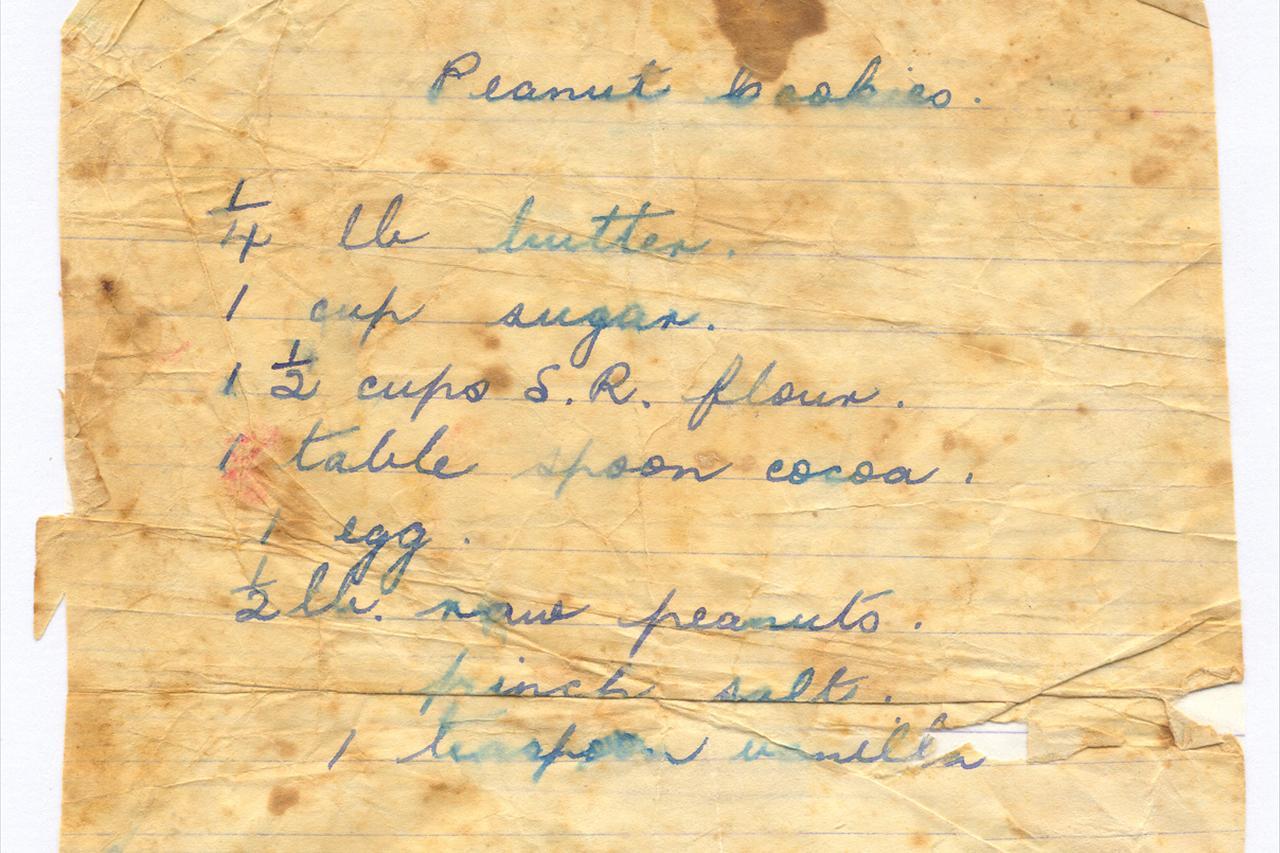 Peanut Cookies.
1/4 lb butter.
1 cup sugar.
1 1/2 cups S.R. flour.
1 table spoon cocoa.
1 egg.
1/2 lb. raw peanuts.
pinch salt.
1 teaspoon vanilla